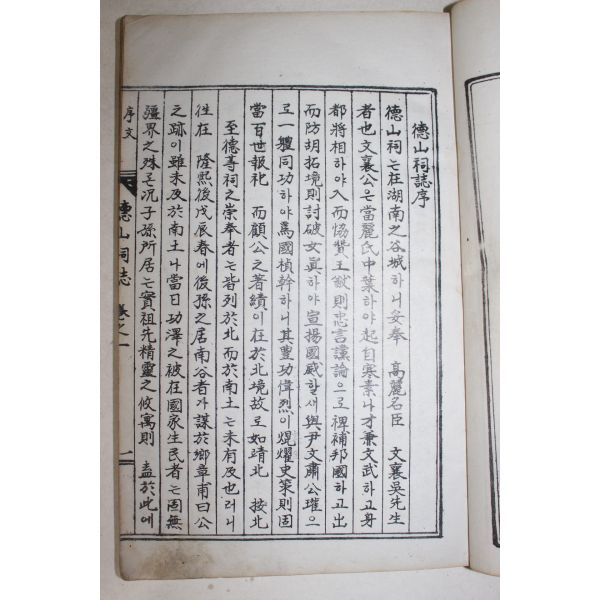 德山祠誌序
德山祠는在湖南之谷城하니妥奉 高麗名臣 文襄吳先生
者也文襄公은當麗氏中葉하야起自寒素나才兼文武하고身
都將相하야入而恊贊王猷則忠言讜論으로裨補邦國하고出
而防胡拓境則討破女眞하야宣揚國威할새與尹文肅公瓘으
로一軆同功하야爲國楨幹하니其豊功偉烈이焜燿史策則固
當百世報祀 而顧公之著績이在於北境故로如靖北 按北
至德等祠之崇奉者는皆列於北而於南土는未有及也러니
徃在 隆熙後戊辰春에後孫之居南谷者가謀於鄕章甫曰公
之跡이雖未及於南土나當日功澤之被在國家生民者는固無
疆界之殊온况子孫所居는實祖先精靈之攸寓則 盍於此에
序文
德山祠誌 卷之一
一